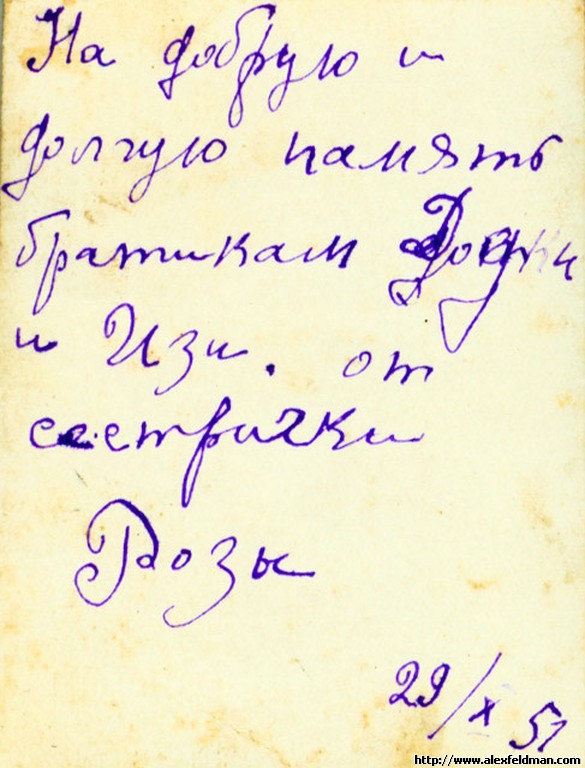 На добрую и
долгую память
братикам
и Изи. от
сестрички
Розы
29/X 51
http://www.alexfeldman.com